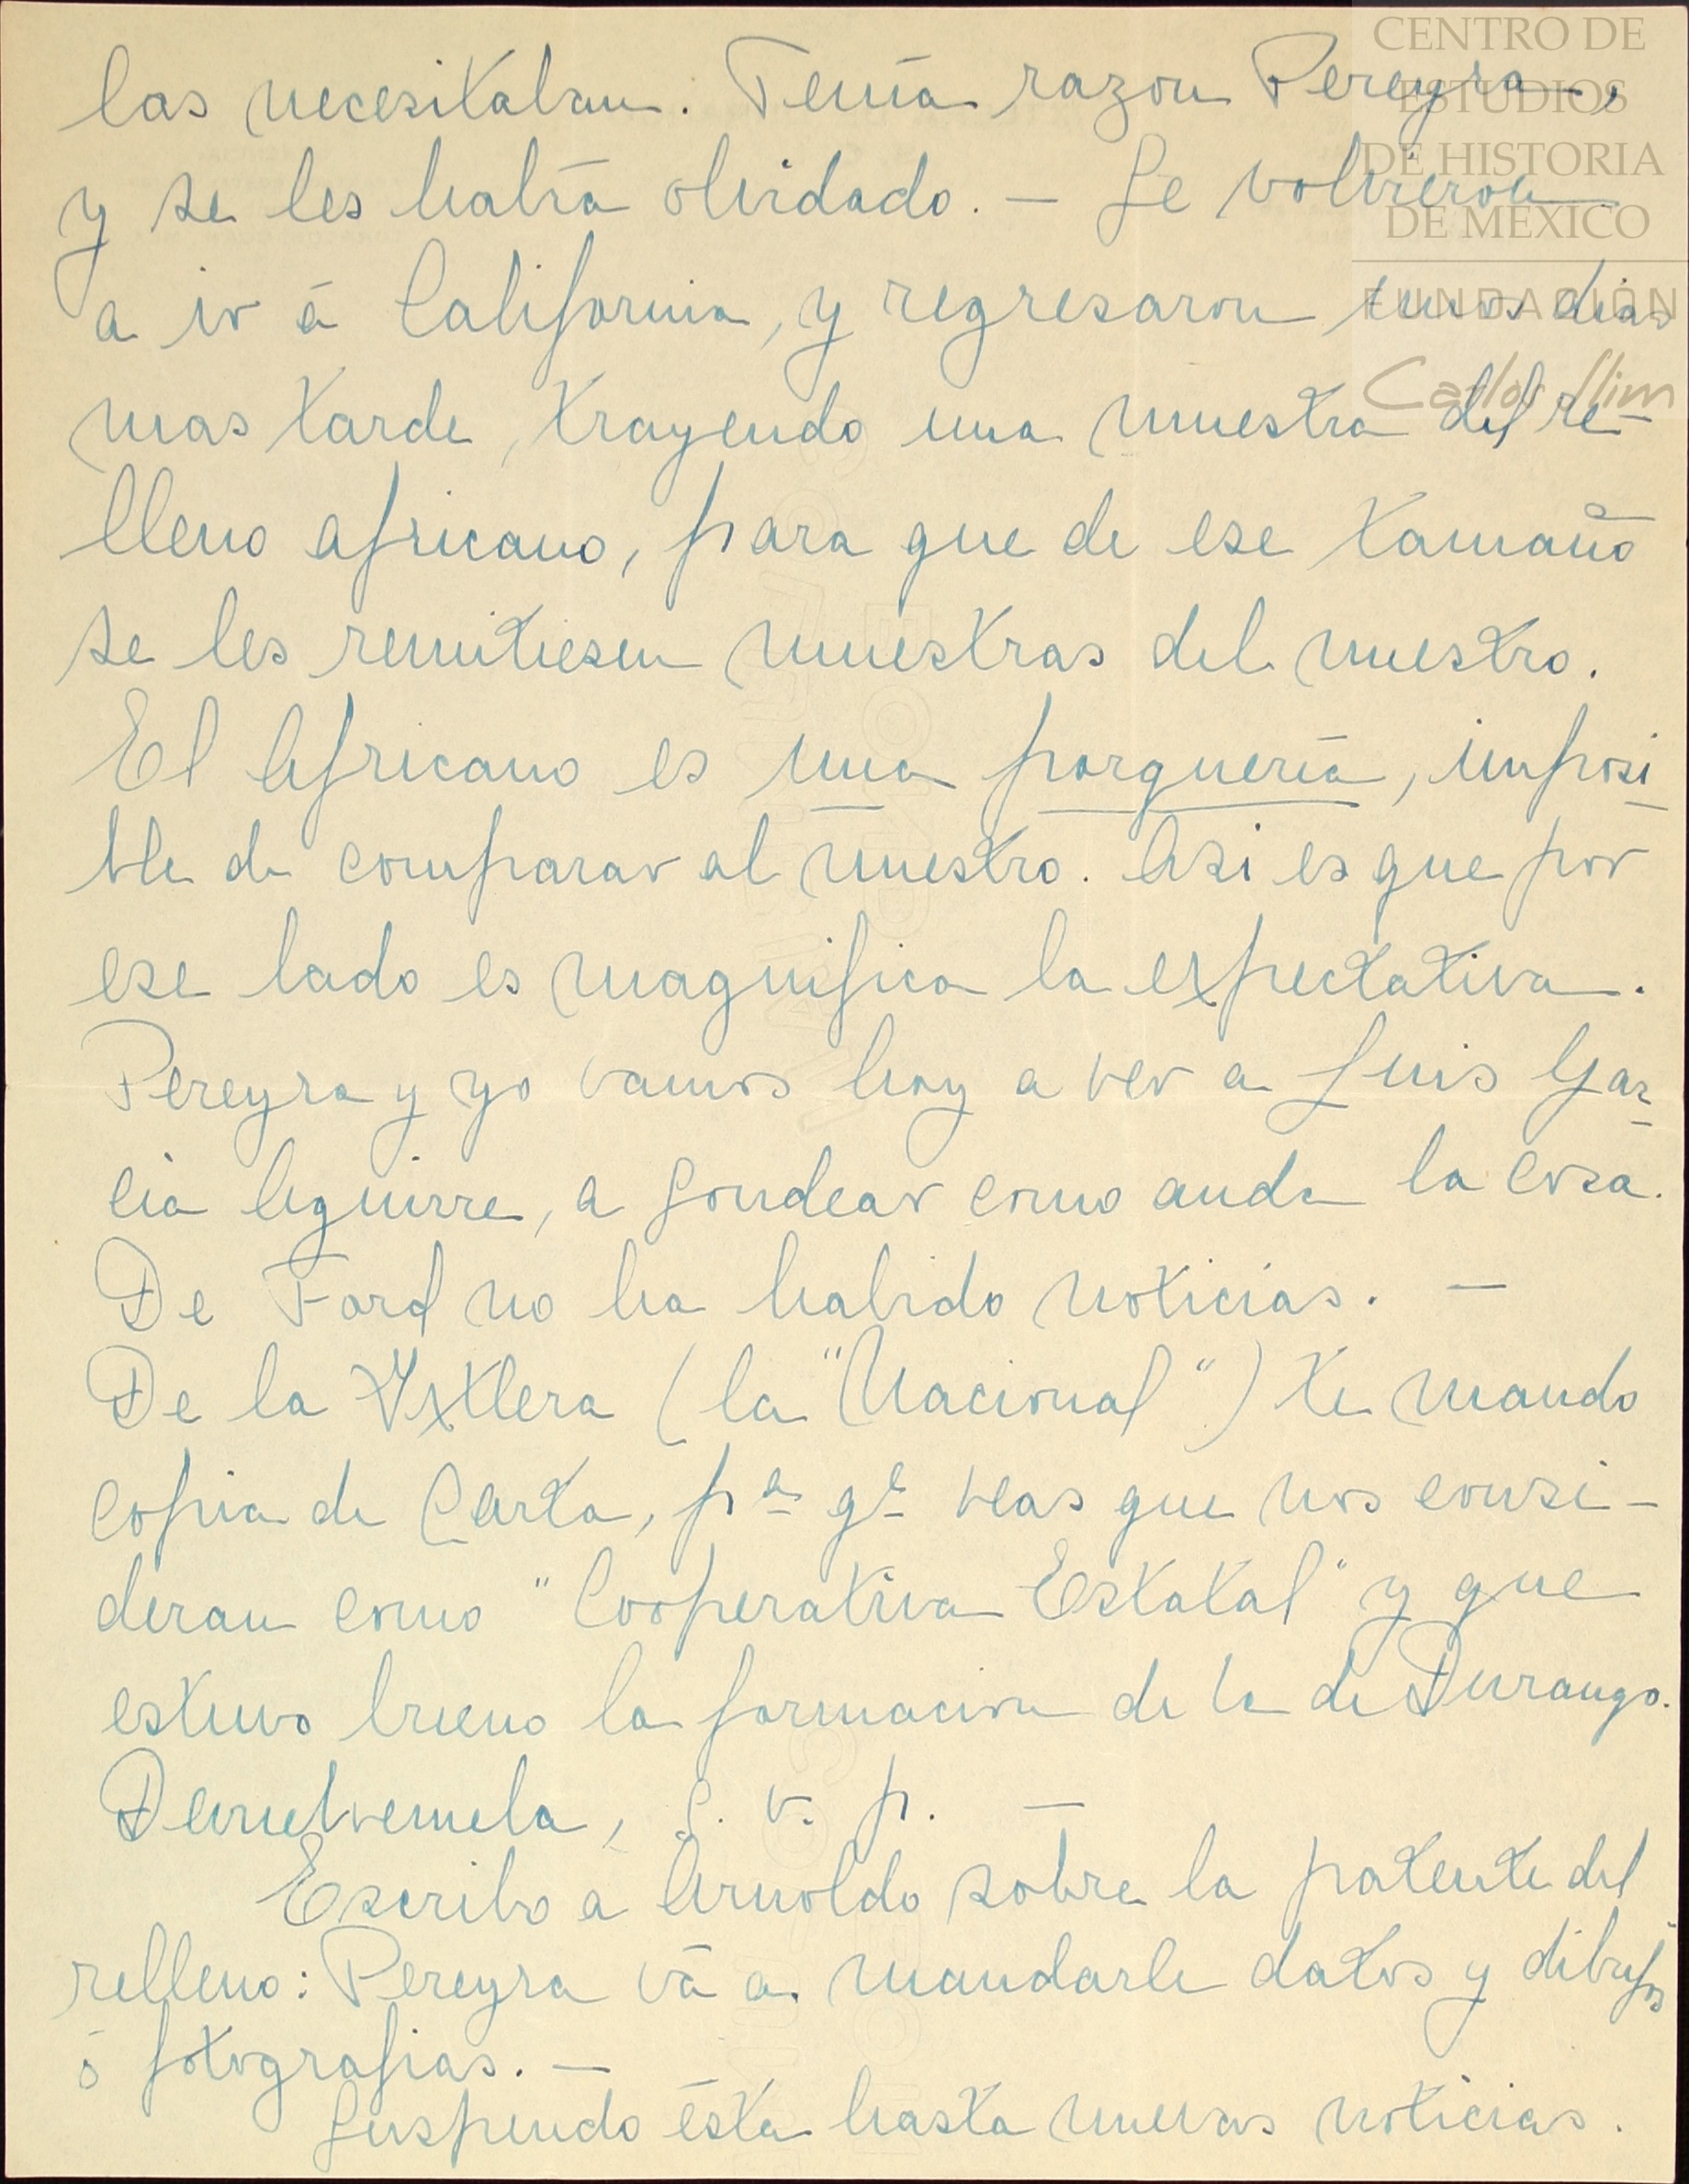 CENTRO DE
ESTUDIOS
DE HISTORIA
DE MEXICO
FUNDACIÓN
Carlos Slim
las necesitaban. Tenía razon Pereyra,
y se les había olvidado. — Se volvieron
a ir á California, y regresaron unos dias
mas tarde, trayendo una muestra del re-
lleno africano, para que de ese tamaño
se les remitiesen muestras del nuestro.
El Africano es una porquería, imposi-
ble de comparar al nuestro. Asi es que por
ese lado es magnifica la expectativa.
Pereyra y yo vamos hoy a ver a Luis Gar-
cia Aguirre, a sondear como anda la cosa.
De Ford no ha habido noticias. —
De la Yxtlera (la "Nacional") te mando
copia de Carta, pª qᵉ veas que nos consi-
deran como "Cooperativa Estatal" y que
estuvo bueno la formacion de la de Durango.
Devuelvemela, s. v. p. —
Escribo a Arnoldo sobre la patente del
relleno: Pereyra vá a mandarle datos y dibujos
ó fotografias. —
Suspendo ésta hasta nuevas noticias.